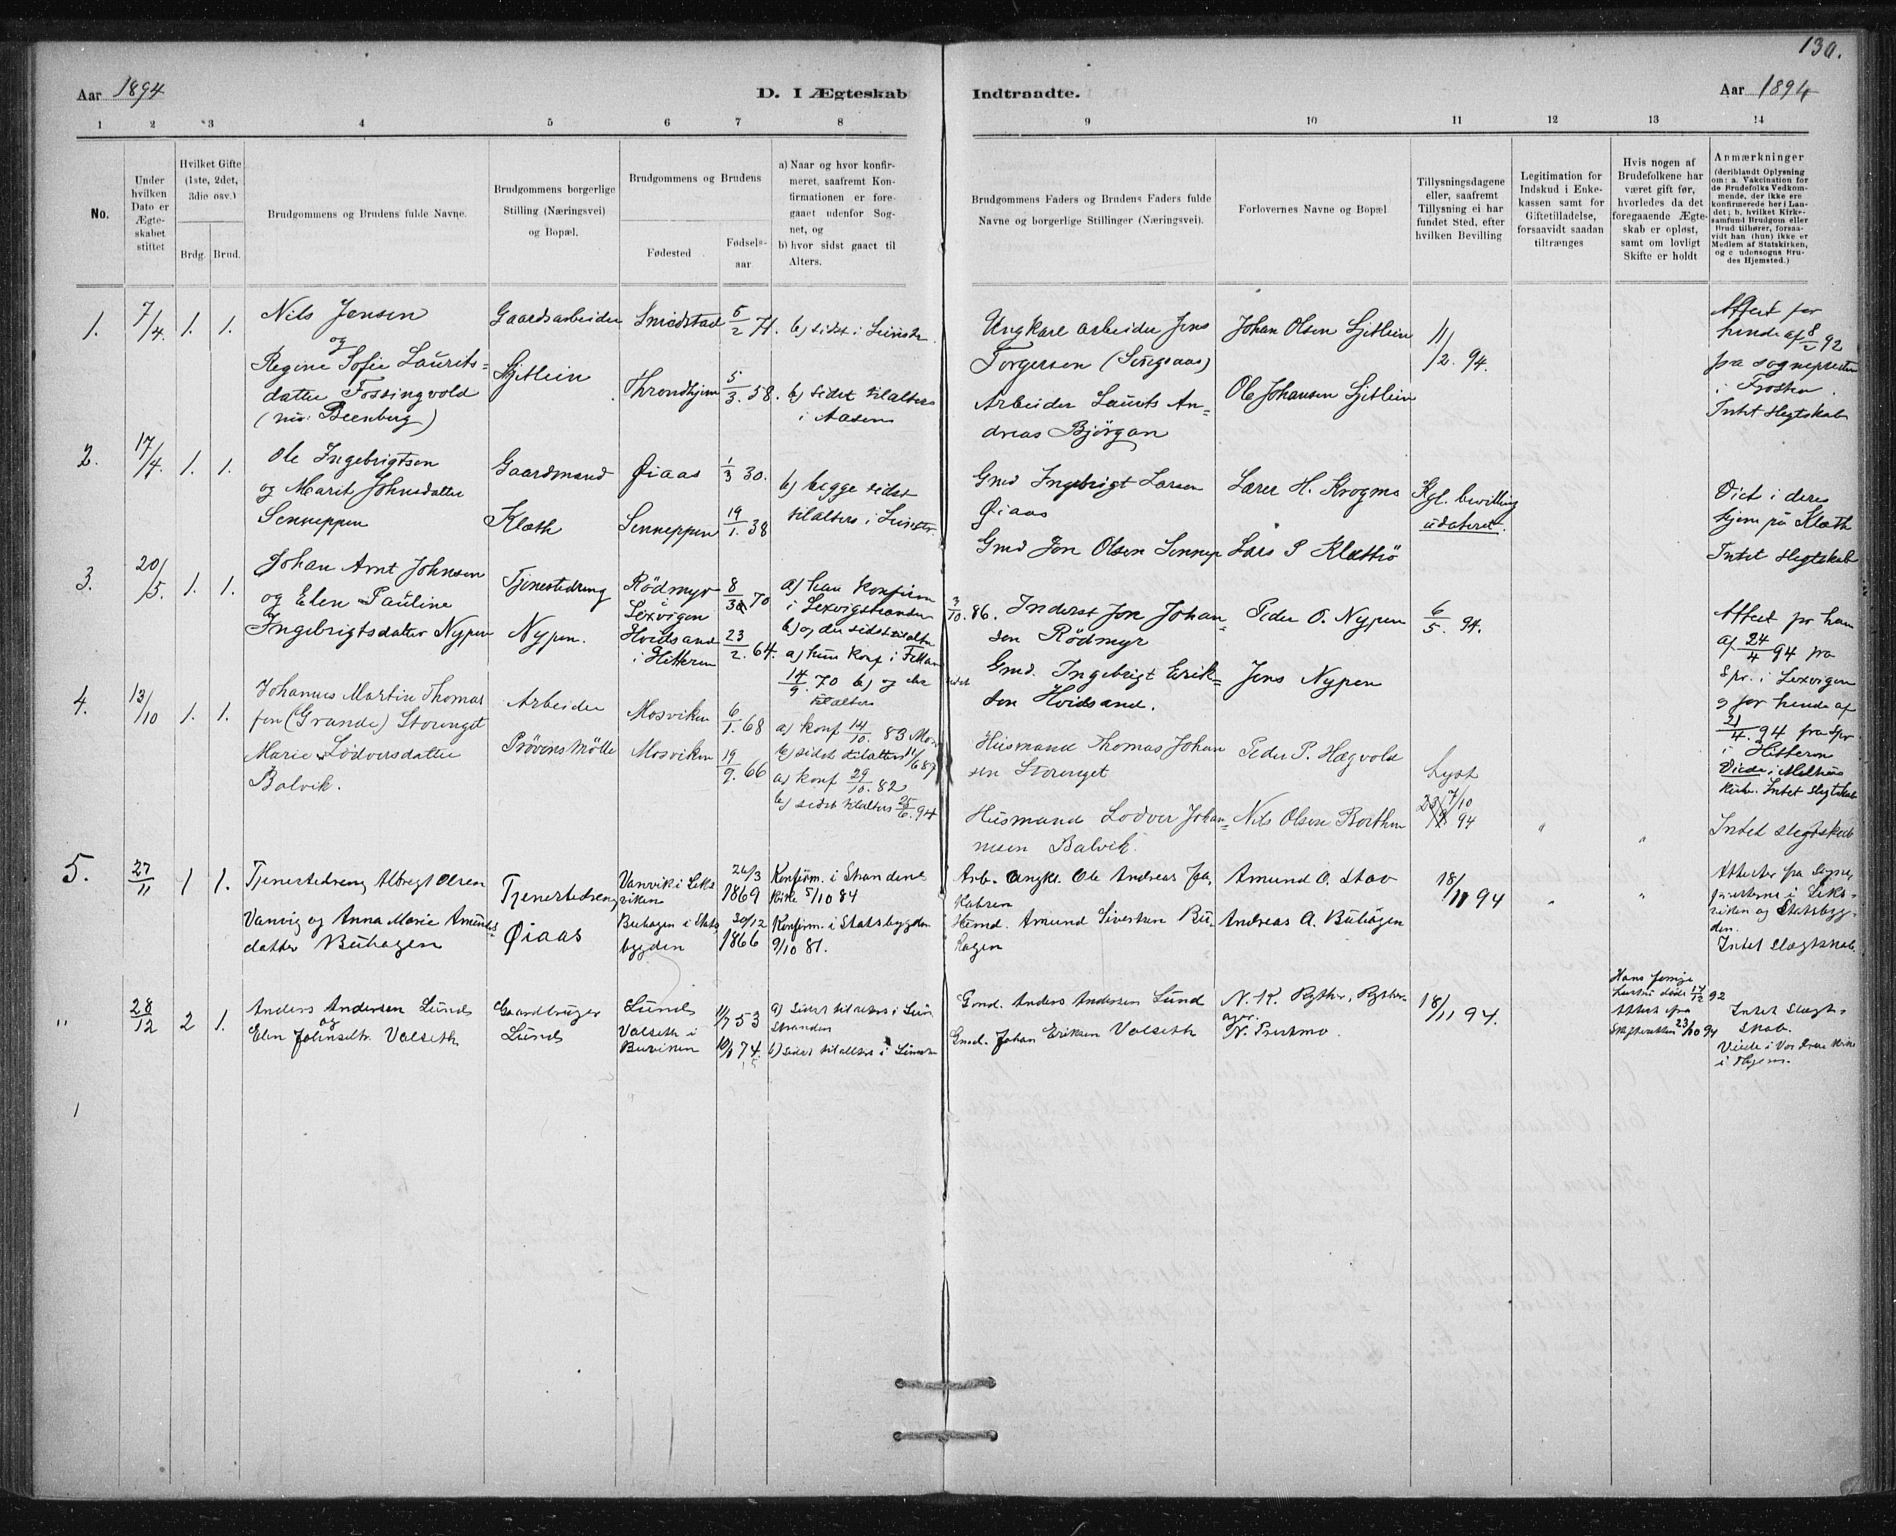 130.
Aar 1894
D. I Ægteskab
Indtraadte.
Aar 1894
1 2 3 4 5 6 7 8
9 10 11 12 13 14
No.
Under hvilken Dato er Ægteskabet stiftet
Hvilket Gifte (1ste, 2det, 3die osv.)
Brdg. Brud.
Brudgommens og Brudens fulde Navne.
Brudgommens borgerlige Stilling (Næringsvei) og Bopæl.
Brudgommens og Brudens
Fødested
Fødselsaar.
a) Naar og hvor konfirmeret, saafremt Konfirmationen er foregaaet udenfor Sognet, og
b) hvor sidst gaaet til Alters.
Brudgommens Faders og Brudens Faders fulde Navne og borgerlige Stillinger (Næringsvei).
Forlovernes Navne og Bopæl
Tillysningsdagene eller, saafremt Tillysning ei har fundet Sted, efter hvilken Bevilling
Legitimation for Indskud i Enkekassen samt for Giftetilladelse, forsaavidt saadan tiltrænges
Hvis nogen af Brudefolkene har været gift før, hvorledes da det foregaaende Ægteskab er opløst, samt om lovligt Skifte er holdt
Anmærkninger
(deriblandt Oplysning om: a. Vakcination for de Brudefolks Vedkommende, der ikke ere konfirmerede her i Landet; b, hvilket Kirkesamfund Brudgom eller Brud tilhører, forsaavidt han (hun) ikke er Medlem af Statskirken, og c udensogns Brudes Hjemsted.)
1. 7/4. 1. 1.
Nils Jensen
og
Regine Sofie Laurits=
datter Fossingvold
(Beenberg)
Gaardsarbeider
Sjetlein
Throndhjem
5/2 71.
5/3. 58.
b) sidst i Leinstr.
b) sidst tilalters
i Aasen
Ungkarl arbeider Jens
Torgersen (Singsaas)
Arbeider Laurits An=
dreas Bjørgan
Johan Olsen Sjetlein
Ole Johansen Sjetlein
11/2. 94.
Attest for
hende af 8/2 92
fra sognepresten
i Frosten.
Intet slegtskab
2. 17/4. 1. 1.
Ole Ingebrigtsen
og Marit Johnsdatter
Senneppen
Gaardmand
Klæth
Øiaas
Senneppen
1/3 30.
19/1. 38
b) begge sidst
tilalters i Leinstr.
Gmd Ingebrigt Larsen
Øiaas
Gmd Jon Olsen Sennep
Lærer H. Krogmo
Lars P Klættrö
Kgl. bevilling
udateret.
Viet i deres
hjem på Klæth
Intet slegtskab
3. 20/5. 1. 1.
Johan Arnt Johnsen
og Elen Pauline
Ingebrigtsdatter Nypen
Tjenestedreng
Nypen.
Rödmyr
Lexvigen
Hvidsand
i Hitteren
70
23/2. 64.
a) han konfirm
i Lexvigstranden
3/10. 86.
b) og der sidst tilalters
a) hun konf i Fillan
14/9. 70 b) og der sidst
tilalters
Inderst Jon Johan=
sen Rödmyr
Gmd. Ingebrigt Erik=
sen Hvidsand.
Peder O. Nypen
Jens Nypen
6/5. 94.
Attest for ham
af 24/4 94 fra
Spr. i Lexvigen
og for hende af
21/4. 94 fra Spr
i Hitteren
Viede i Melhus
Kirke. Intet slegtskab
4. 13/10 1. 1.
Johannes Martin Thomas
sen (Grande) Storenget
Marie Lodversdatter
Balvik.
Arbeider
Prövens Mölle
Mosviken
Mosviken
6/1. 68
19/9. 66
a) konf 14/10. 83 Mosv
b) sidst tilalters 11/6 87
a) konf 29/10. 82
b) sidst tilalters 25/6. 94
Husmand Thomas Johan
sen Storenget
Husmand Lodver Johan=
nesen Balvik.
Peder P. Hægvold
Nils Olsen Borthen
Lyst
7/10
94
"
"
Intet slegtskab
5. 27/11 1 1.
Tjenestedreng Albregt Olsen
Vanvig og Anna Marie Amunds=
datter Buhagen
Tjenestedreng
Øiaas
Vanvik i Leks
viken
Buhagen i Stats
bygden
26/3
1869
30/12
1866
Konfirm. i Strandens
Kirke 5/10 84
Konfirm. i Statsbygden
9/10 81.
Arb. Ungk. Ole Andreas Ja=
kobsen
Hsmd. Amund Sivertsen Bu=
hagen
Amund O. Stav
Andreas A. Buhagen
18/11 94
"
"
Attester fra Sogne
presterne i Leks
viken og Statsbyg=
den.
Intet slægtskab.
" 28/12 2 1.
Anders Andersen Lund
og
Elen Johnsdtr. Valseth
Gaardbruger
Lund
Lund
Valseth i
Buviken
11/7 53
10/1 74.
a) Sidst tilalters i Lein
stranden
b) Sidst tilalters i Leinstr
Gmd. Anders Andersen Lund
Gmd. Johan Eriksen Valseth
N. K. Ryther, Ryther
ager.
N. Prestmo.
18/11 94.
Hans forrige
hustru döde 17/12 92
Attest fra
Skifteretten 23/10 94
Intet slægt=
skab.
Viede i Vor Frue Kirke
i Thjem.